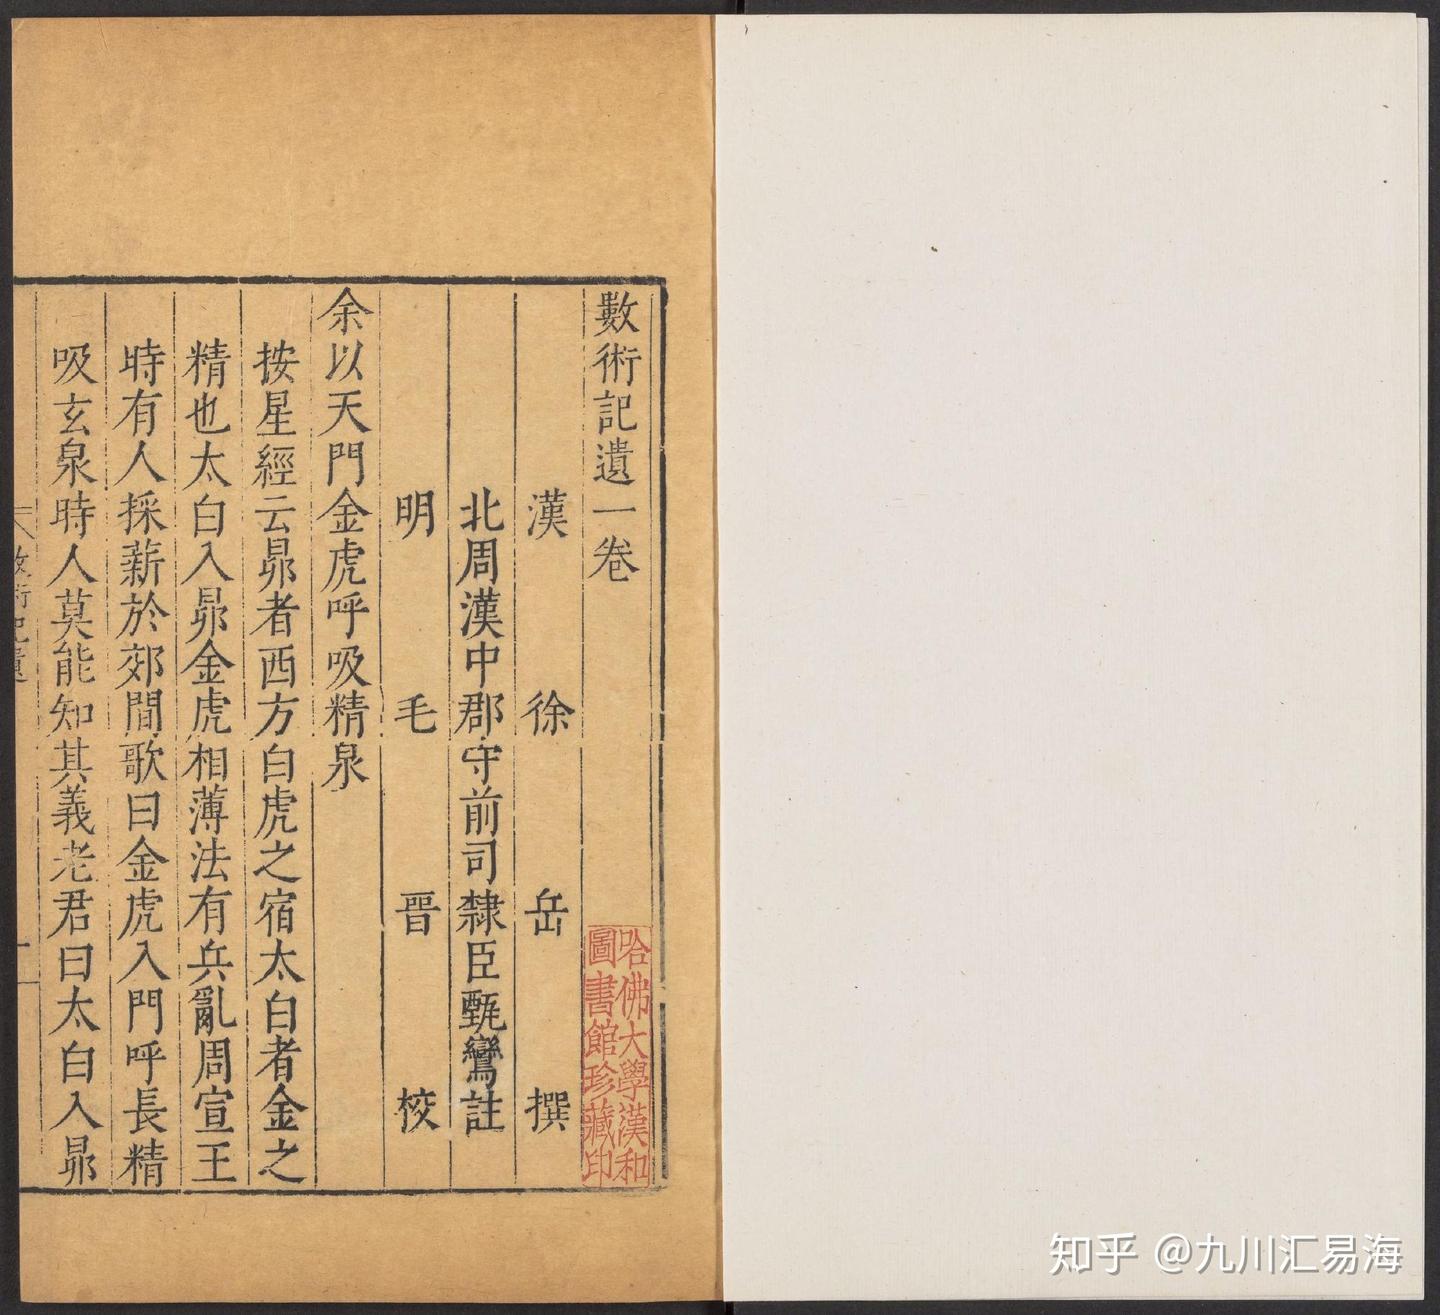 數術記遺一卷
漢 徐 岳 撰
北周漢中郡守前司隸臣甄鸞註
明 毛 晉 校
余以天門金虎呼吸精泉
按星經云昴者西方白虎之宿太白者金之
精也太白入昴金虎相薄法有兵亂周宣王
時有人採薪於郊間歌曰金虎入門呼長精
吸玄泉時人莫能知其義老君曰太白入昴
數術記遺
哈佛大學漢和
圖書館珍藏印
知乎 @九川汇易海